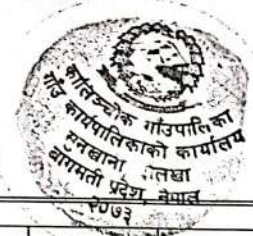 कालिञ्चोक गाउँपालिका
गाउँ कार्यपालिकाको कार्यालय
सुनखानी
बागमती प्रदेश, नेपाल
२०७३